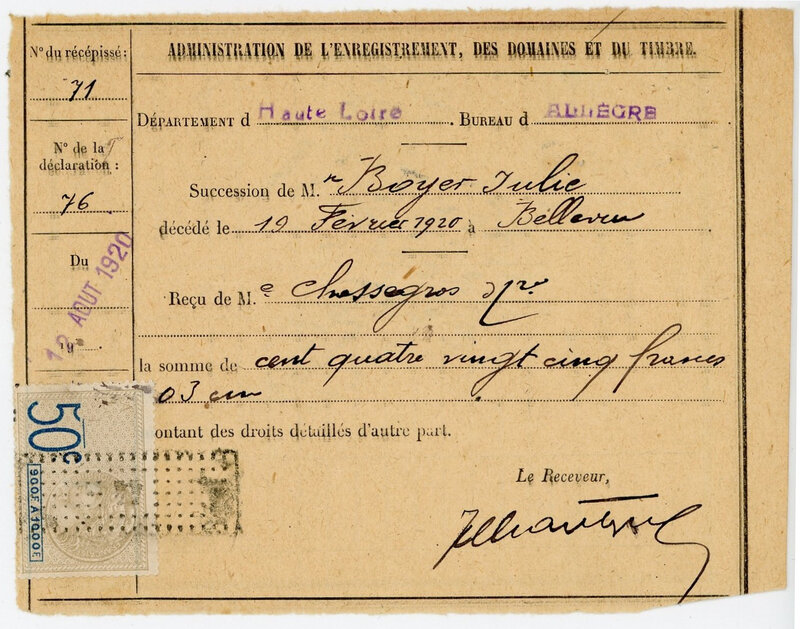 N° du récépissé :
71
N° de la
déclaration :
76
Du
12 AOUT 1920
19
50c
900F A 1000F
ADMINISTRATION DE L'ENREGISTREMENT, DES DOMAINES ET DU TIMBRE.
DÉPARTEMENT d Haute Loire . BUREAU d ALLÈGRE
Succession de M.r Boyer Julie
décédé le 19 Février 1920 à Bellevue
Reçu de M.e Chassegros
la somme de cent quatre vingt cinq francs
03 cm
ontant des droits détaillés d'autre part.
Le Receveur,